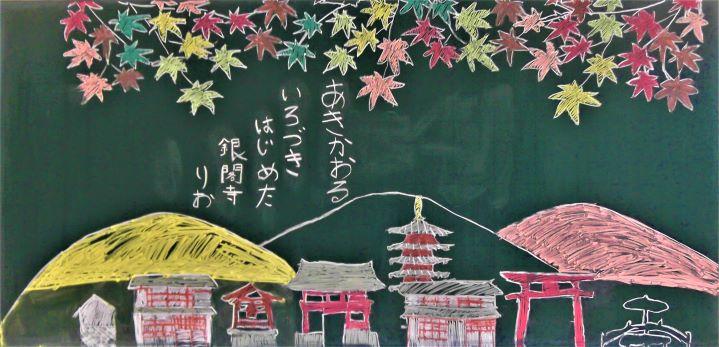 あきかおる
いろづき
はじめた
銀閣寺
りお